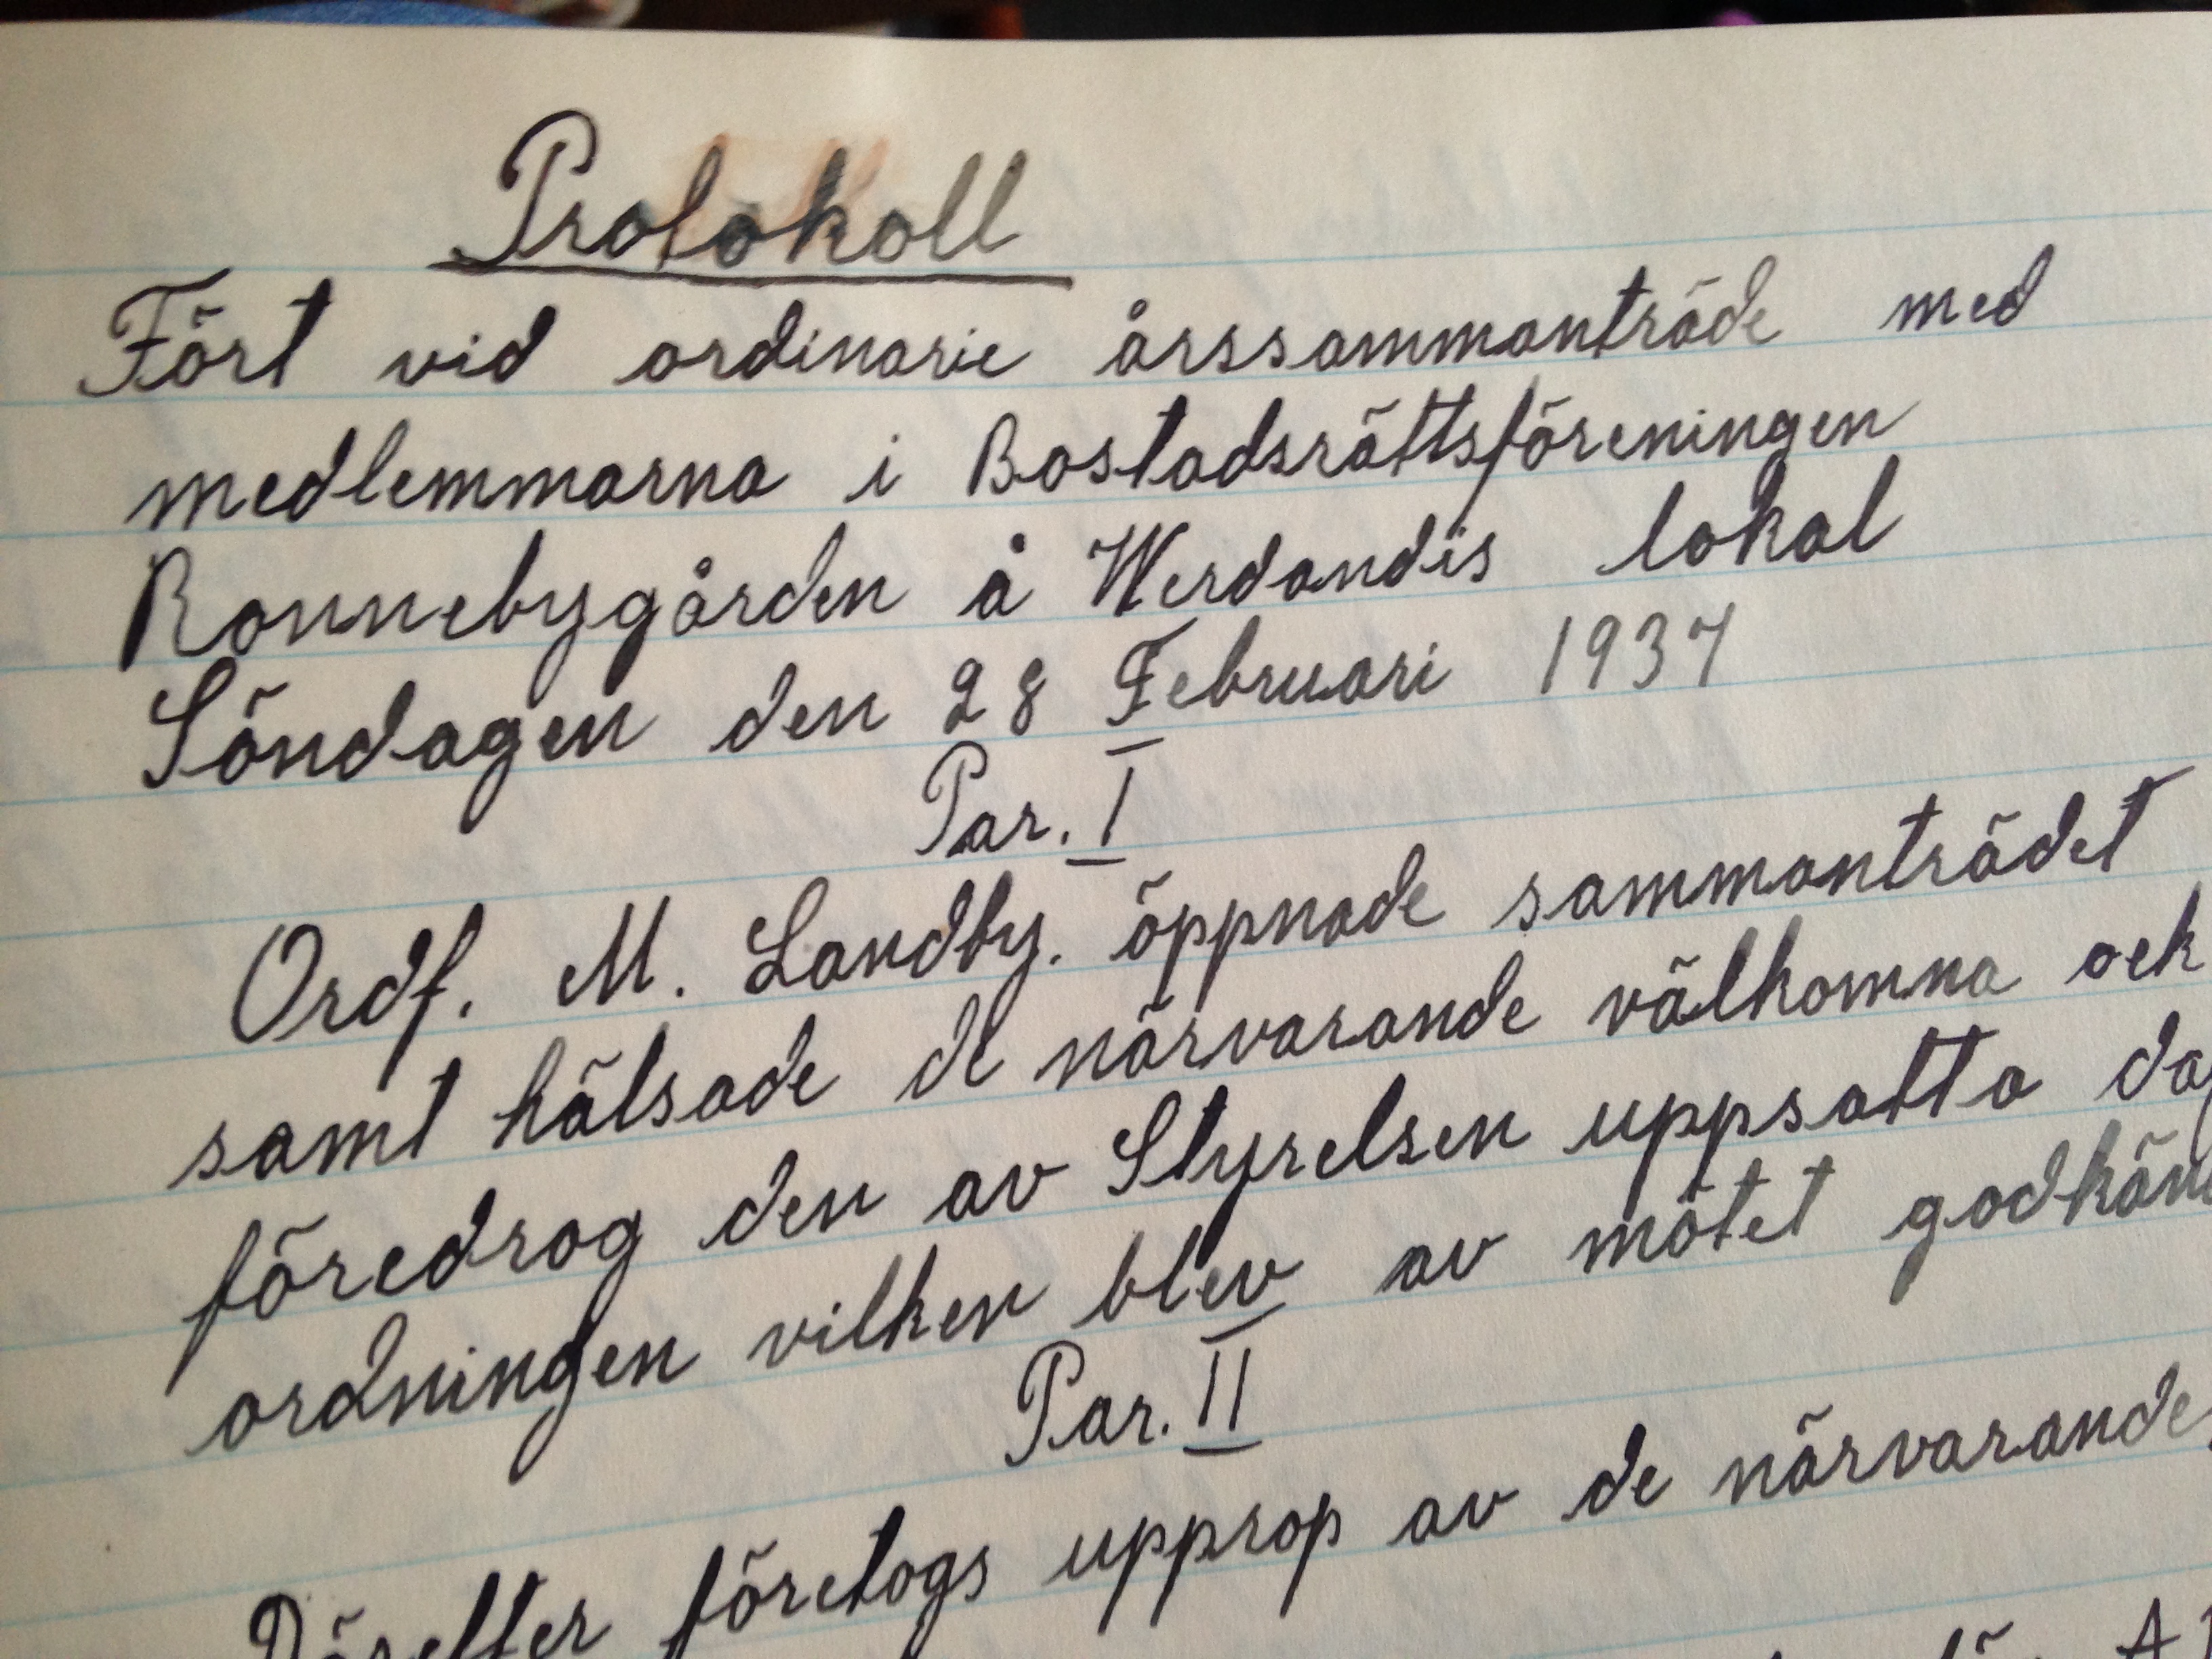 Protokoll
Fört vid ordinarie årssammanträde med
medlemmarna i Bostadsrättsföreningen
Ronnebygården å Werdandis lokal
Söndagen den 28 Februari 1937
Par. I
Ordf. M. Landby. öppnade sammanträdet
samt hälsade de närvarande välkomna och
föredrog den av Styrelsen uppsatta
ordningen vilken blev av mötet
Par. II
Därefter företogs upprop av de närvarande